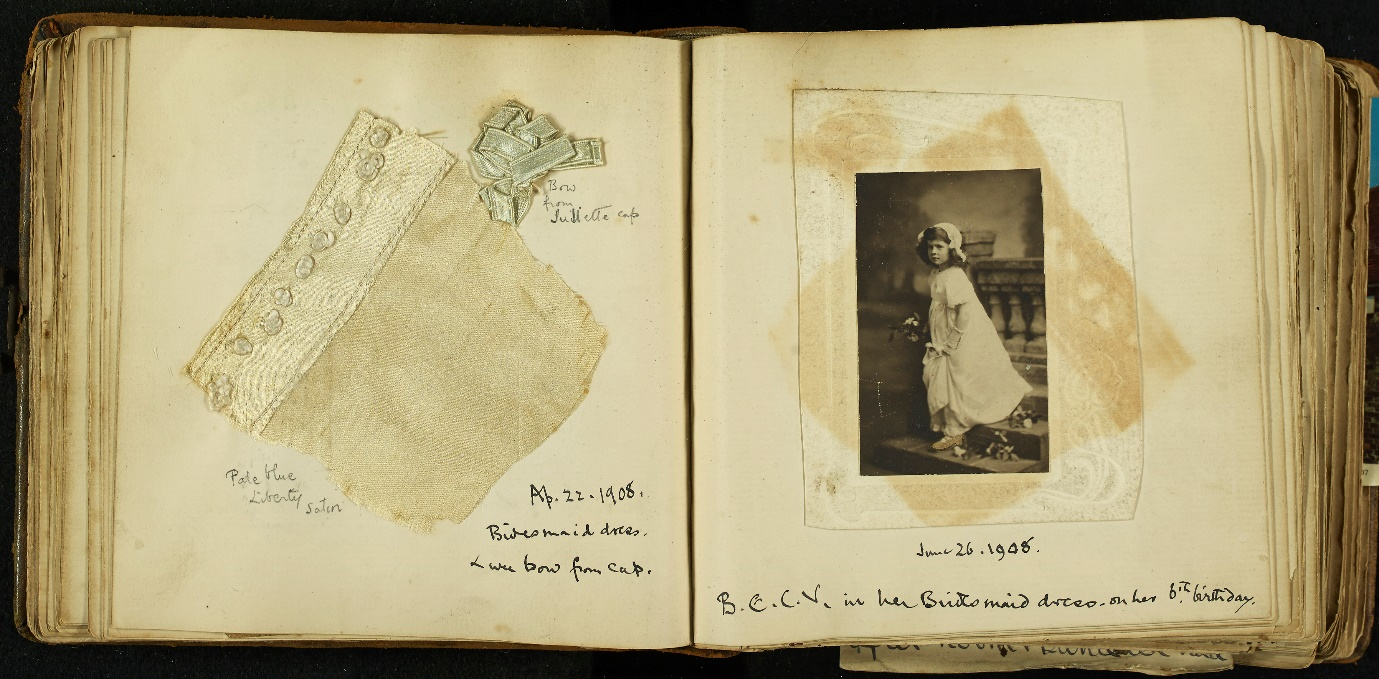 Bow
from
Juliette cap
Pale blue
Liberty
Satin
Ap. 22. 1908.
Bridesmaid dress.
& wee bow from cap.
June 26. 1908.
B. C. V. in her Bridesmaid dress. on her 6th birthday.